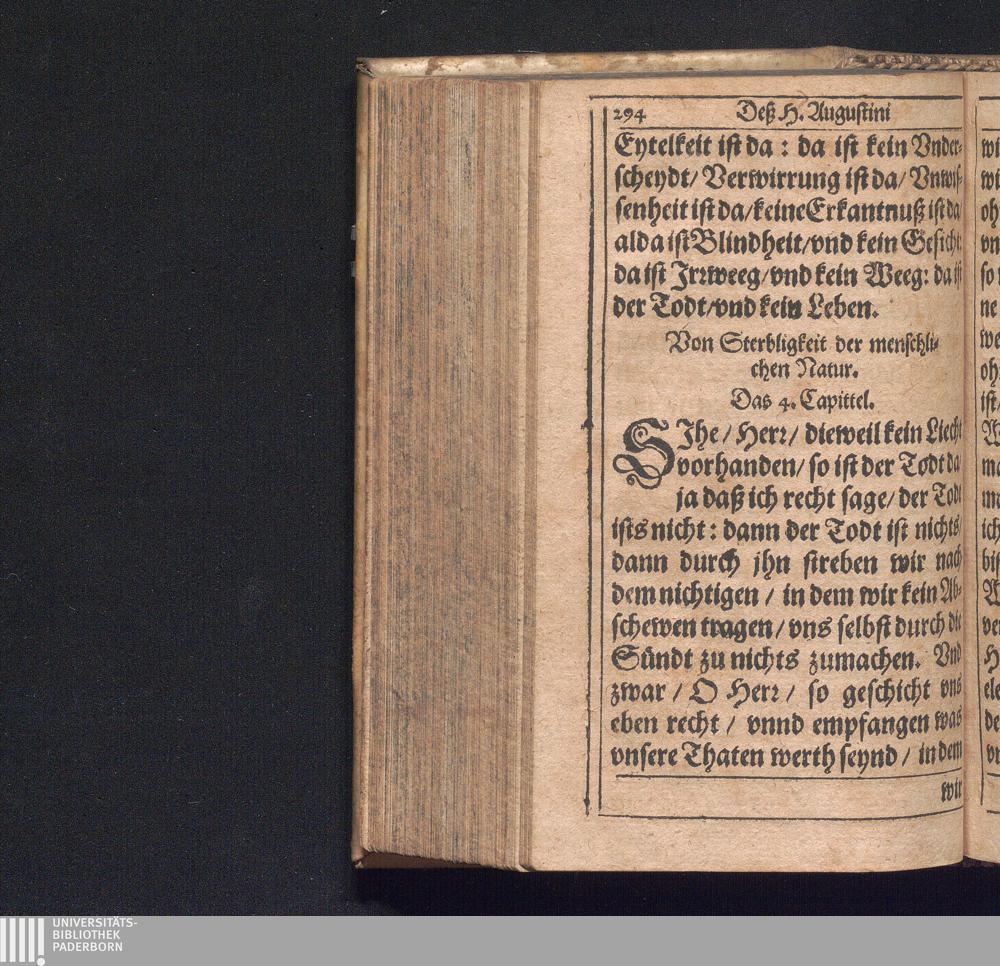 294 Deß H. Augustini
Eytelkeit ist da : da ist kein Vnder-
scheydt/ Verwirrung ist da/ Vnwis-
senheit ist da/ keine Erkantnuß ist da
alda ist Blindheit/ vnd kein Gesicht
da ist Irrweeg/ vnd kein Weeg: da ist
der Todt/ vnd kein Leben.
Von Sterbligkeit der menschli-
chen Natur.
Das 4. Capittel.
SIhe / Herr / dieweil kein Liecht
vorhanden/ so ist der Todt da
ja daß ich recht sage/ der Todt
ists nicht : dann der Todt ist nichts/
dann durch jhn streben wir nach
dem nichtigen / in dem wir kein Ab-
schewen tragen/ vns selbst durch die
Sündt zu nichts zumachen. Vnd
zwar / O Herr / so geschicht vns
eben recht / vnnd empfangen was
vnsere Thaten werth seynd / in dem
wir
wi
wi
oh
vn
so
ne
we
oh
ist/
ma
ma
ich
bis
ve
H
ele
de
vn
UNIVERSITÄTS-
BIBLIOTHEK
PADERBORN